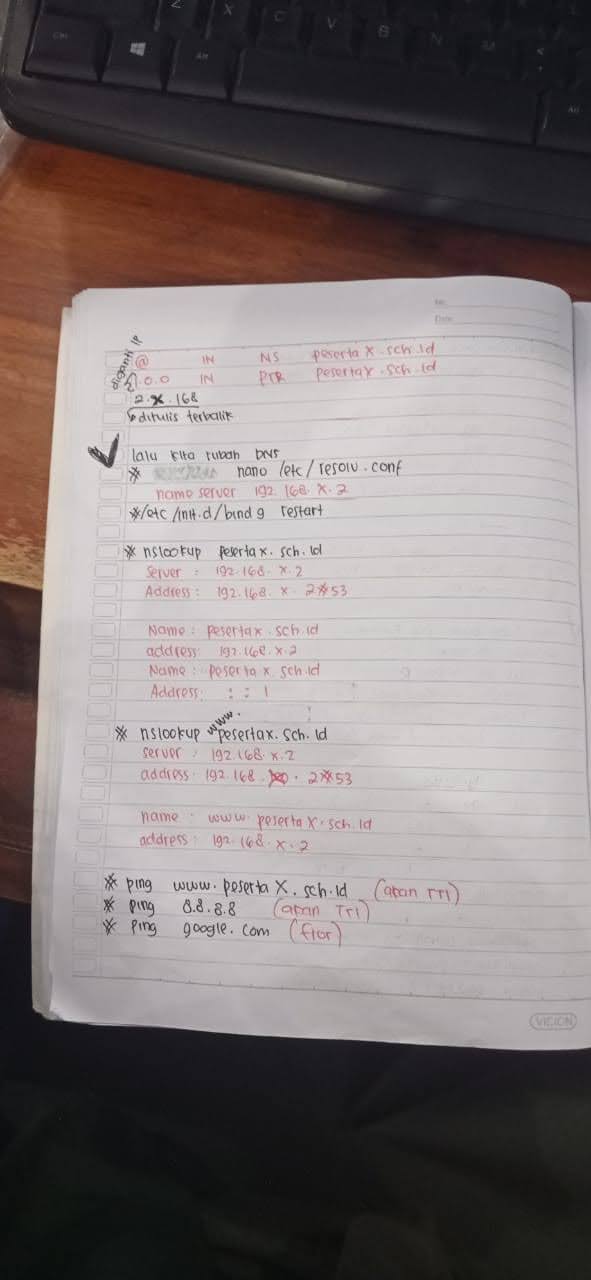 Z X C V B N M <
Ctrl Alt Alt
No:
Date:
diganti IP
@ IN NS pesertaX.sch.id
1.0.0 IN PTR pesertax.sch.id
2.X.168
ditulis terbalik
lalu kita rubah DNS
# nano /etc/resolv.conf
name server 192.168.X.2
#/etc/init.d/bind9 restart
# nslookup pesertax.sch.id
Server : 192.168.X.2
Address : 192.168.X.2#53
Name : pesertax.sch.id
address: 192.168.X.2
Name : peserta x.sch.id
Address : : : 1
# nslookup www.pesertax.sch.id
server : 192.168.X.2
address : 192.168. . 2#53
name : www.pesertaX.sch.id
address : 192.168.X.2
# ping www.pesertaX.sch.id (akan TTl)
# ping 8.8.8.8 (akan TTl)
# ping google.com
VISION